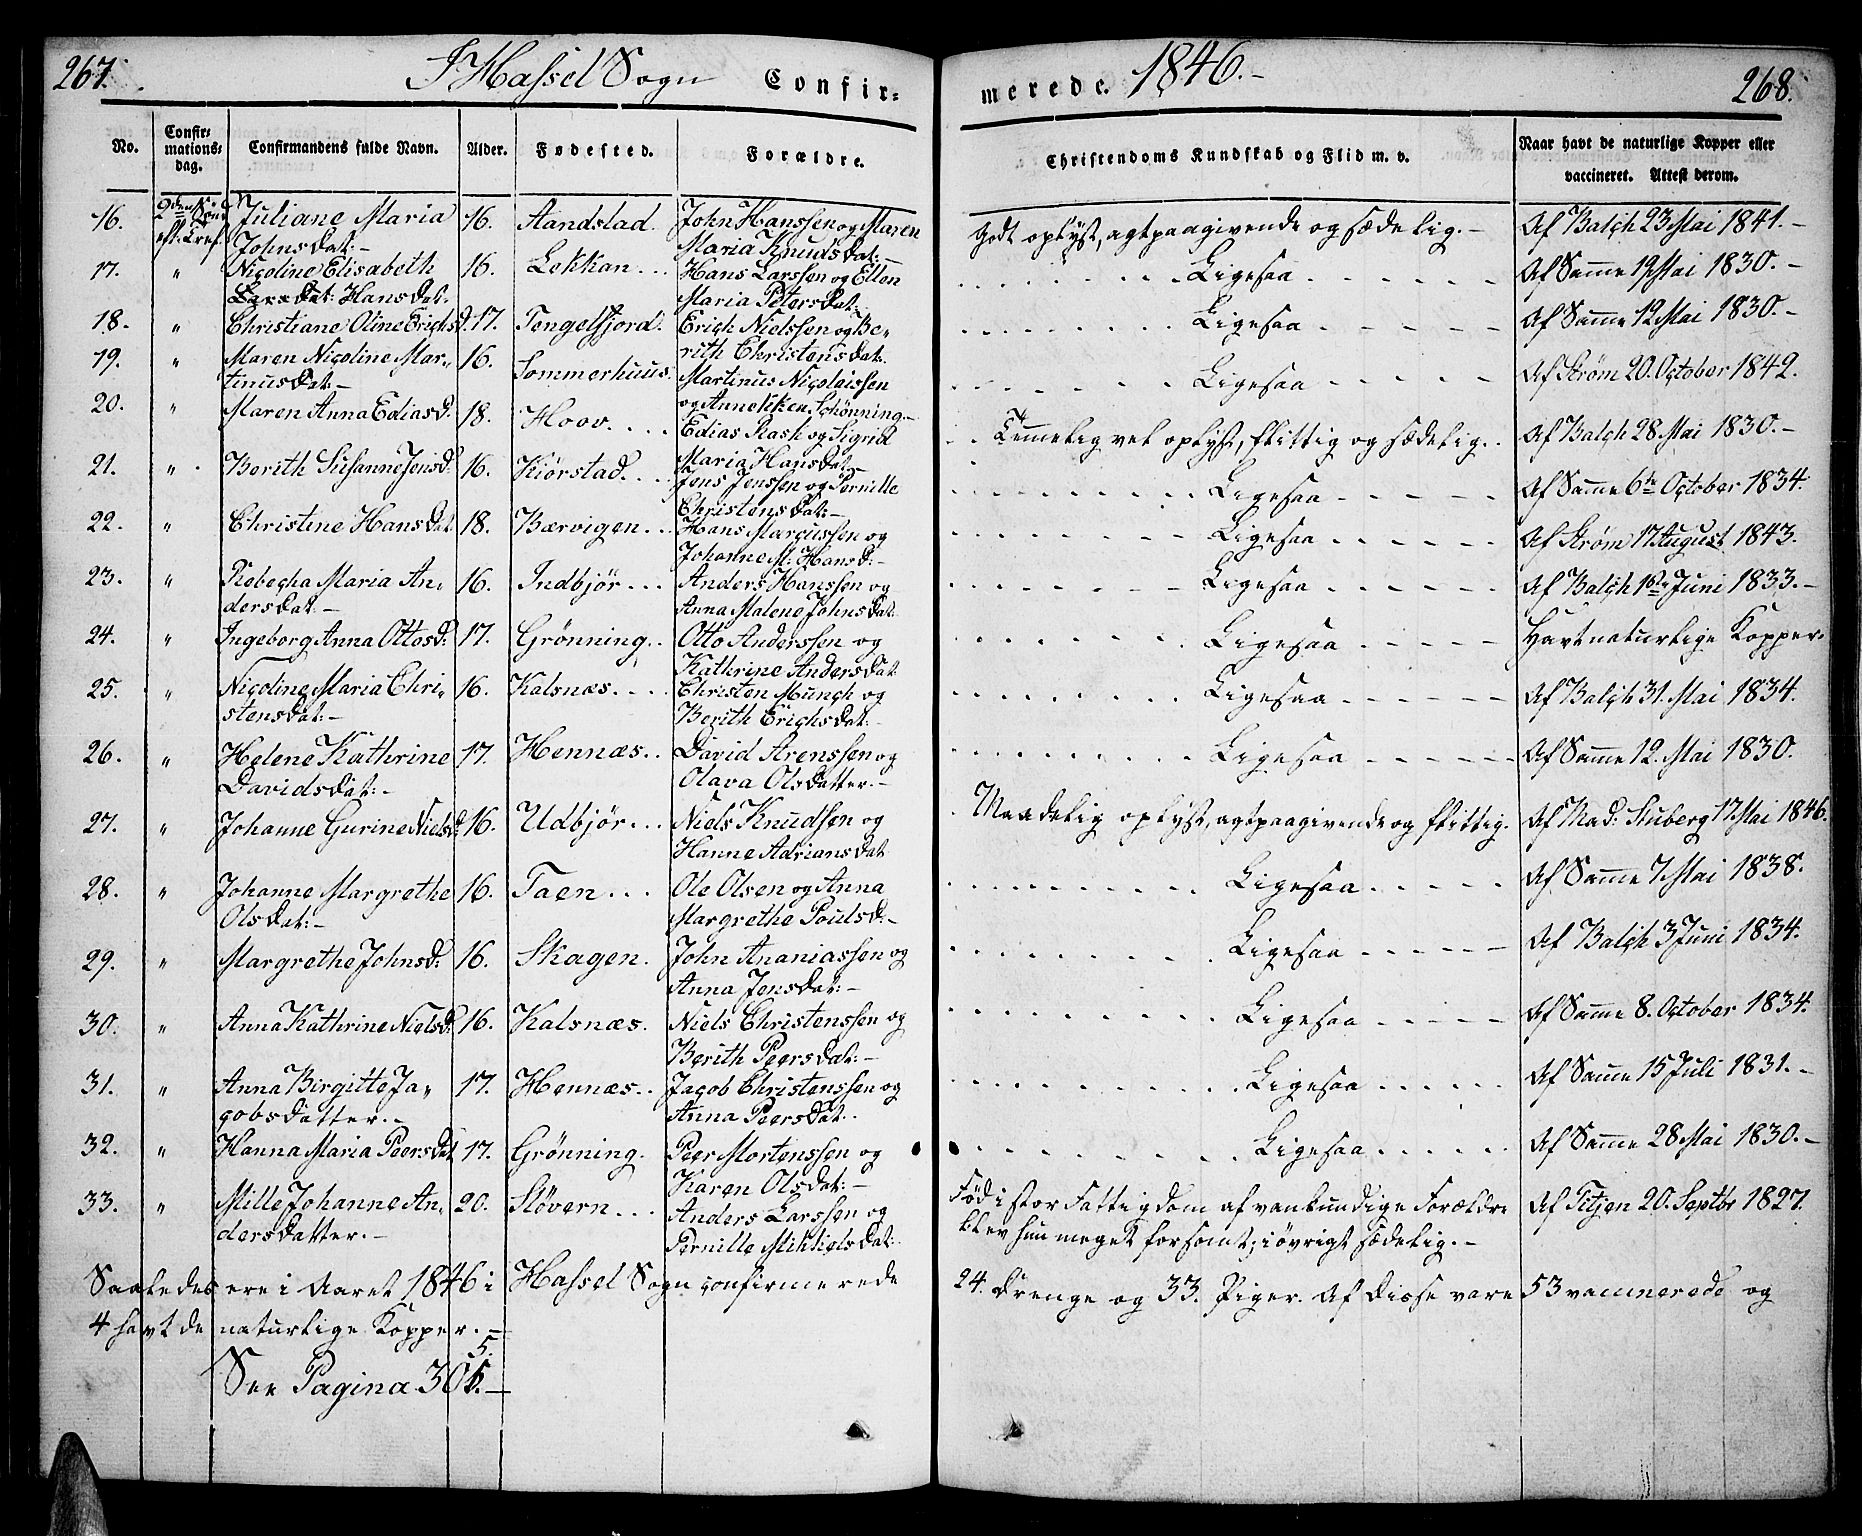 267.
I Hassel Sogn Confir-
merede. 1846.-
268.
No. Confir-mations-dag. Confirmandens fulde Navn. Alder. Fødested. Forældre. Christendoms Kundskab og Flid m. v. Naar havt de naturlige Kopper eller vaccineret. Attest derom.
16. 2den Sønd. eft. Tref. Juliane Maria 16. Aandstad. John Hanssen og Maren Godt oplyst, agtpaagivende og sædelig.- Af Balch 23 Mai 1841.-
Johnsdat:- Maria Knudsdat:-
17. " Nicoline Elisabeth 16. Lekkan... Hans Larssen og Ellen Ligesaa Af Samme 19 Mai 1830.-
Larsdat: Hansdat. Maria Petersdat:
18. " Christiane Oline Erichsd. 17. Tengelfjord. Erich Nielssen og Be- Ligesaa Af Samme 12 Mai 1830.-
rith Christensdat:
19. " Maren Nicoline Mar- 16. Sommerhuus. Martinus Nicolaissen Ligesaa Af Strøm 20. October 1842.
tinusdat:- og Annekken Schönning.-
20. " Maren Anna Ediasd: 18. Hoov.... Edias Rask og Sigrid Temmelig vel oplyst, flittig og sædelig. Af Balch 28 Mai 1830.-
Maria Hansdat:
21. " Berith Susanne Jensd: 16. Kiörstad... Jens Jenssen og Pernille Ligesaa Af Samme 6te October 1834.
Christensdat:-
22. " Christine Hansdat 18. Bærvigen... Hans Marcussen og Ligesaa Af Strøm 17 August 1843.
Johanne M: Hansd:-
23. " Rebecha Maria An- 16. Indbjör... Anders Hanssen og Ligesaa Af Balch 16de Juni 1833.-
dersdat:- Anna Malene Johnsdat.
24. " Ingeborg Anna Ottosd: 17. Grönning.. Otto Anderssen og Ligesaa Havt naturlige Kopper.
Kathrine Andersdat
25. " Nicoline Maria Chri- 16. Kalsnæs.... Christen Munch og Ligesaa Af Balch 31. Mai 1834.
stensdat:- Berith Erichsdat:-
26. " Helene Kathrine 17. Hennæs... David Arenssen og Ligesaa Af Samme 12. Mai 1830.
Davidsdat:- Olava Olsdatter.-
27. " Johanne Gurine Nielsd: 16. Udbjör... Niels Knudsen og Maadelig oplyst, agtpaagivende og flittig. Af Mad: Stuberg 17 Mai 1846.
Hanne Adriansdat
28. " Johanne Margrethe 16. Taen... Ole Olsen og Anna Ligesaa Af Samme 7 Mai 1838.
Olsdat:- Margrethe Poulsd:-
29. " Margrethe Johnsd: 16. Skagen. John Ananiassen og Ligesaa Af Balch 3 Juni 1834.
Anna Jensdat:-
30. " Anna Kathrine Nielsd: 16. Kalsnæs. Niels Christenssen og Ligesaa Af Samme 8. October 1834.
Berith Peersdat:-
31. " Anna Birgitte Ja- 17. Hennæs.. Jacob Christenssen og Ligesaa Af Samme 15 Juli 1831.-
cobsdatter.- Anna Peersdat.
32. " Hanna Maria Peersdat 17. Grönning. Peer Mortenssen og Ligesaa Af Samme 28 Mai 1830.-
Karen Olsdat:-
33. " Mille Johanne An- 20. Slövern... Anders Larssen og Föd i stor Fattigdom af vankundige Forældre Af Titjen 20. Septbr 1827.
dersdatter.- Pernille Mikkelsdat: blev hun meget forsömt; i övrigt sædelig.-
Saaledes ere i Aaret 1846 i Hassel Sogn confirmerede 24. Drenge og 33. Piger. Af disse vare 53 vaccinerede og
4 havt de naturlige Kopper.-
See Pagina 305.-